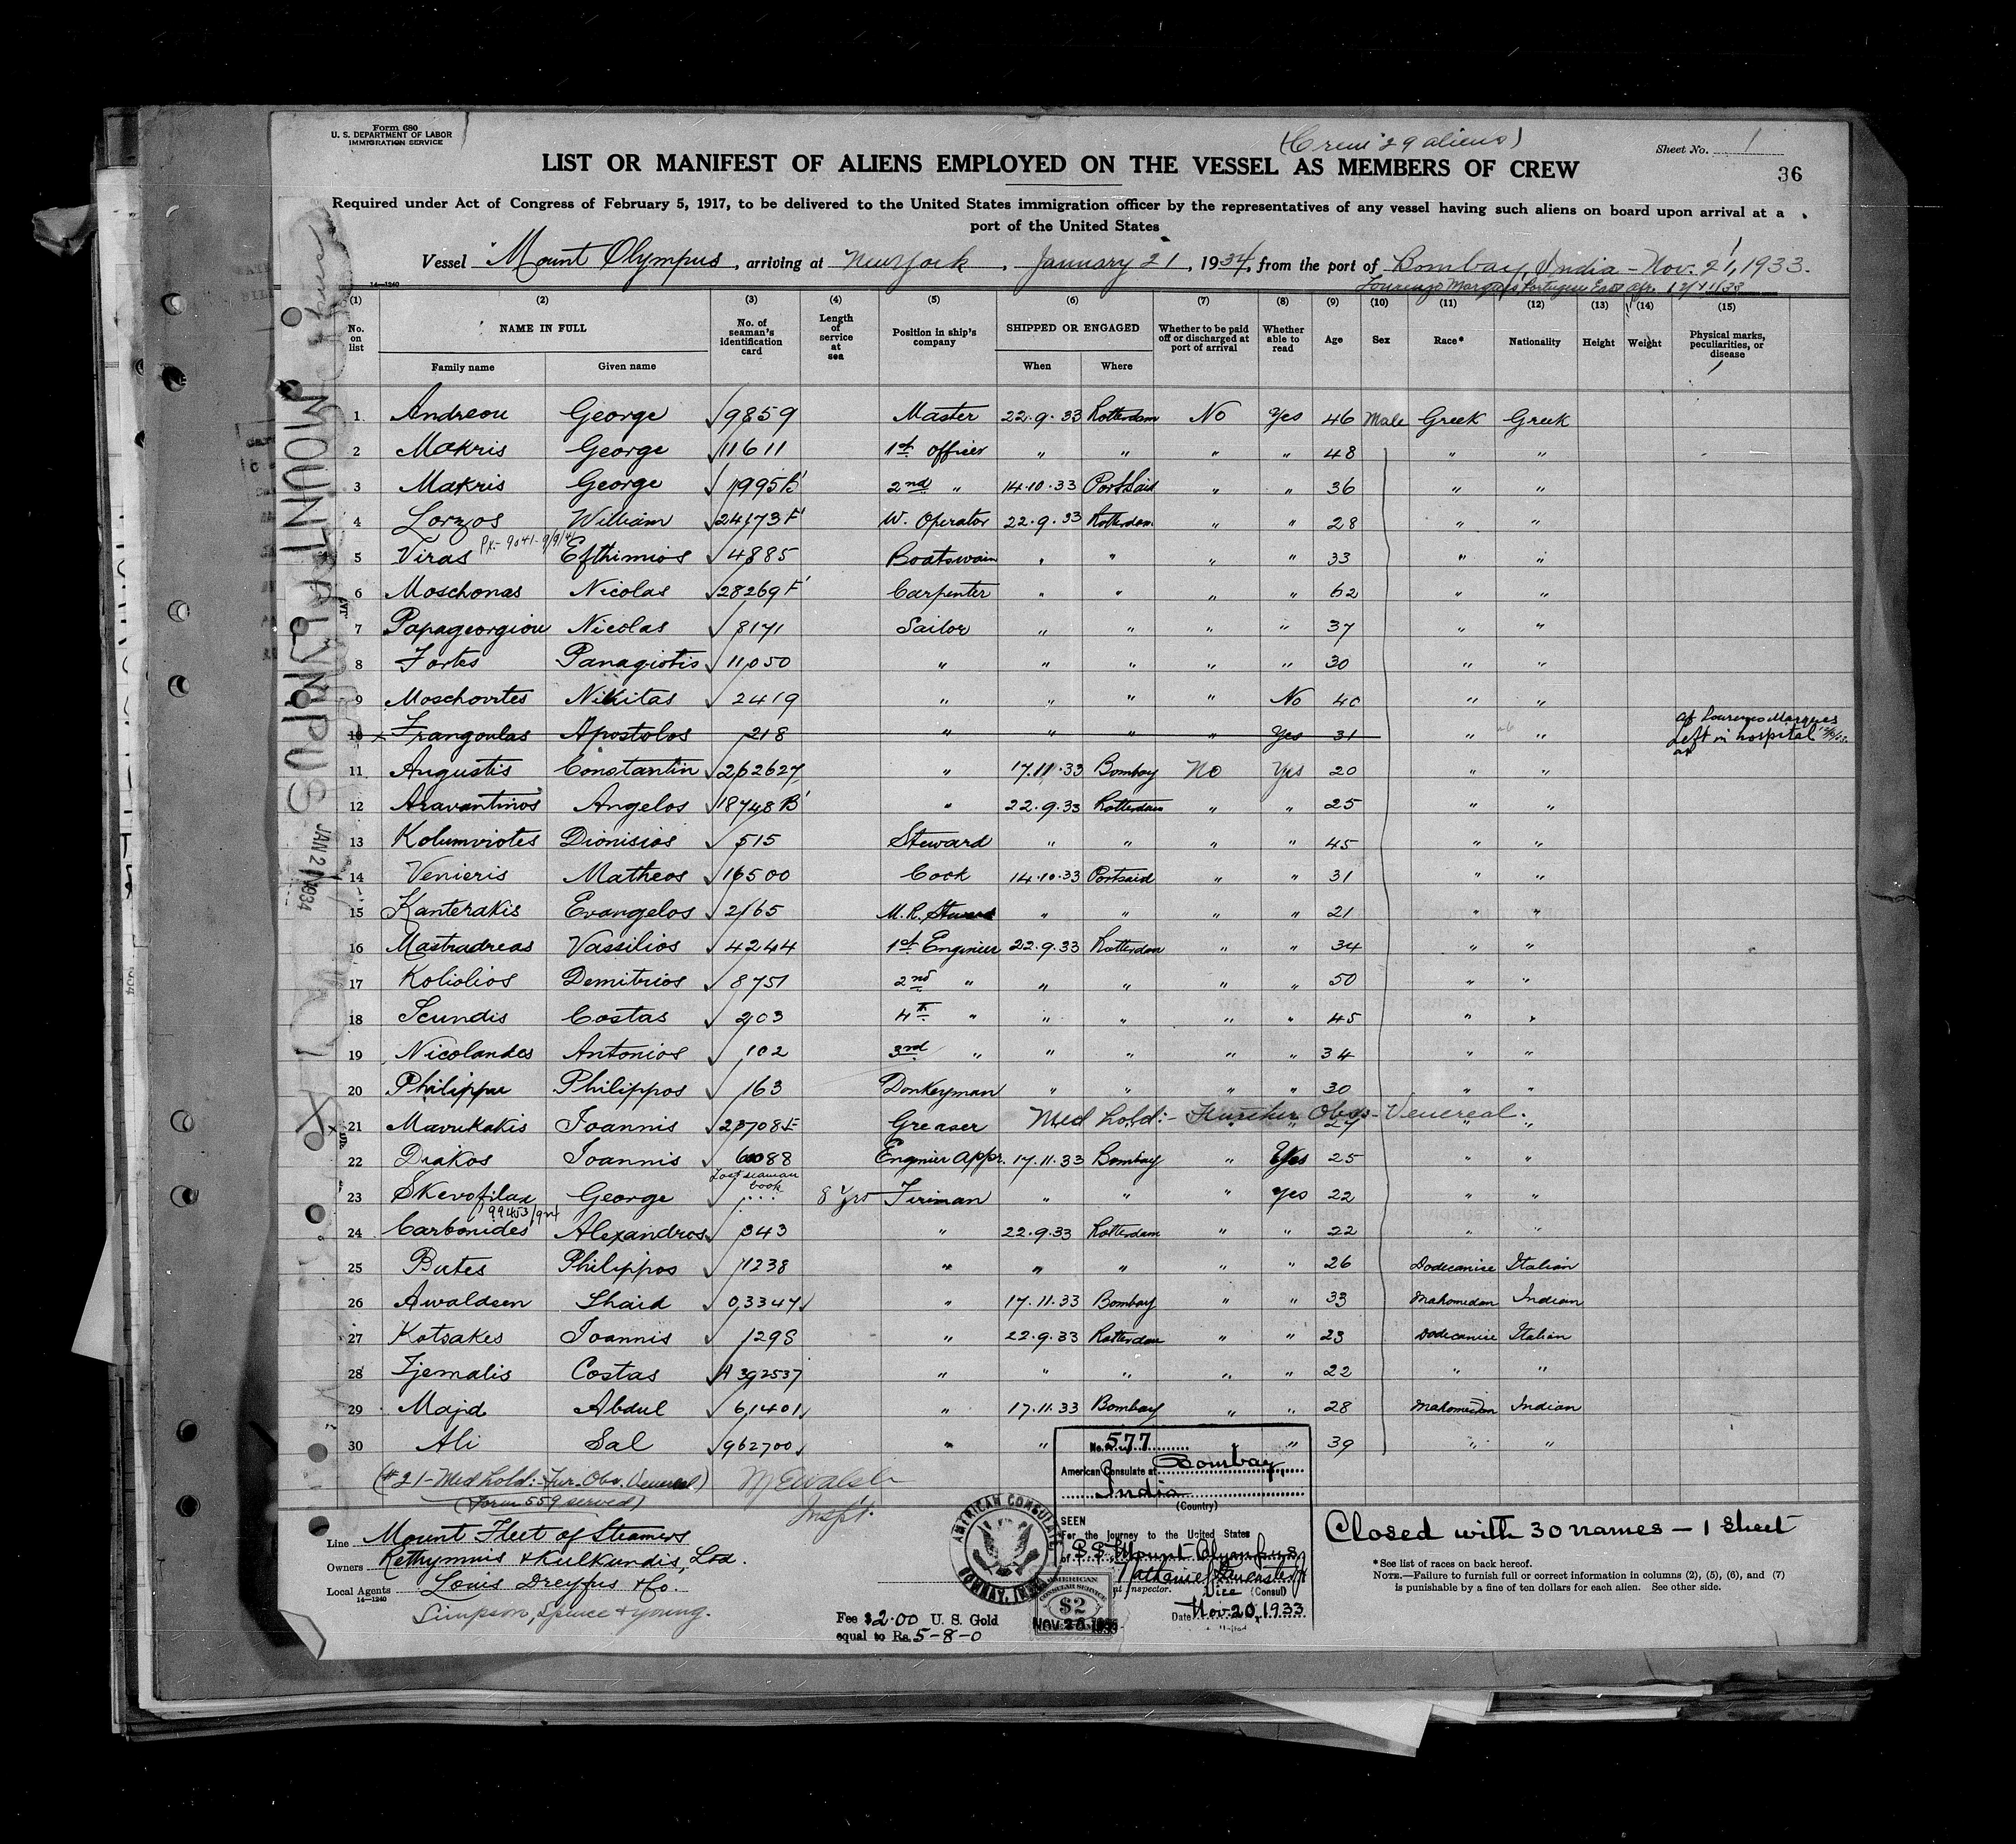 Form 680
U. S. DEPARTMENT OF LABOR
IMMIGRATION SERVICE
(Crew 29 aliens)
Sheet No. 1
LIST OR MANIFEST OF ALIENS EMPLOYED ON THE VESSEL AS MEMBERS OF CREW
36
Required under Act of Congress of February 5, 1917, to be delivered to the United States immigration officer by the representatives of any vessel having such aliens on board upon arrival at a
port of the United States
Vessel Mount Olympus, arriving at New York, January 21, 1934, from the port of Bombay, India - Nov. 21, 1933.
Lourenzo Marques, Portuguese East Afr.
14-1240
(1) (2) (3) (4) (5) (6) (7) (8) (9) (10) (11) (12) (13) (14) (15)
No. on list NAME IN FULL Family name Given name No. of seaman's identification card Length of service at sea Position in ship's company SHIPPED OR ENGAGED When Where Whether to be paid off or discharged at port of arrival Whether able to read Age Sex Race* Nationality Height Weight Physical marks, peculiarities, or disease
1 Andreou George 9859 Master 22.9.33 Rotterdam No Yes 46 Male Greek Greek
2 Makris George 11611 1st officer " " " " 48 " "
3 Makris George 1995 B' 2nd " 14.10.33 Port Said " " 36 " "
4 Lorzos William 24173 F' W. Operator 22.9.33 Rotterdam " " 28 " "
5 Viras Efthimios 4885 Boatswain " " " " 33 " "
6 Moschonas Nicolas 28269 F' Carpenter " " " " 62 " "
7 Papageorgiou Nicolas 8171 Sailor " " " " 37 " "
8 Fortes Panagiotis 11050 " " " " " 30 " "
9 Moschovites Nikitas 2419 " " " " No 40 " "
10 x Frangoulas Apostolos 218 " " " " Yes 31 " " at Lourenco Marques Left in hospital
11 Augustis Constantin 262627 " 17.11.33 Bombay No Yes 20 " "
12 Aravantinos Angelos 18748 B' " 22.9.33 Rotterdam " " 25 " "
13 Kolumviotes Dionisios 515 Steward " " " " 45 " "
14 Venieris Matheos 16500 Cook 14.10.33 Portsaid " " 31 " "
15 Kanterakis Evangelos 2165 M.R. Steward " " " " 21 " "
16 Mastradreas Vassilios 4244 1st Engineer 22.9.33 Rotterdam " " 34 " "
17 Koliolios Demitrios 8751 2nd " " " " " 50 " "
18 Scundis Costas 203 4th " " " " " 45 " "
19 Nicolandes Antonios 102 3rd " " " " " 34 " "
20 Philippu Philippos 163 Donkeyman " " " " 30 " "
21 Mavrikakis Joannis 23708 F Greaser Med hold:- Further Obs.- Venereal. 27 " "
22 Diakos Joannis 6088 Enginier Appr. 17.11.33 Bombay " Yes 25 " "
Lost seaman book
23 Skevofilax George 8 yrs Firiman " " " yes 22 " "
99453/924
24 Carbonides Alexandros 343 " 22.9.33 Rotterdam " " 22 " "
25 Butes Philippos 1238 " " " " " 26 Dodecanise Italian
26 Awaldeen Shaid 03347 " 17.11.33 Bombay " " 33 Mahomedan Indian
27 Kotsakes Joannis 1298 " 22.9.33 Rotterdam " " 23 Dodecanise Italian
28 Tjemalis Costas A 392537 " " " " " 22 " "
29 Majd Abdul 61401 " 17.11.33 Bombay " " 28 Mahomedan Indian
30 Ali Sal 962700 " " " 39 " "
(#21 - Med hold:- Fur. Obs. Venereal)
(Form 559 served)
M E Walsh
Insp't.
Line Mount Fleet of Steamers
Owners Rethymnis & Kulkundis, Ltd.
Local Agents Louis Dreyfus & Co.
14-1240
Simpson, Spence & Young.
No. 577
American Consulate at Bombay,
India
(Country)
SEEN
For the Journey to the United States
of S S Mount Olympus
Vice (Consul)
Date Nov. 20, 1933
AMERICAN CONSULATE
BOMBAY, INDIA
AMERICAN
CONSULAR SERVICE
$2
Fee $2.00 U. S. Gold
equal to Rs. 5-8-0
Closed with 30 names - 1 sheet
*See list of races on back hereof.
NOTE.—Failure to furnish full or correct information in columns (2), (5), (6), and (7)
is punishable by a fine of ten dollars for each alien. See other side.
MOUNT OLYMPUS
JAN 21 1934